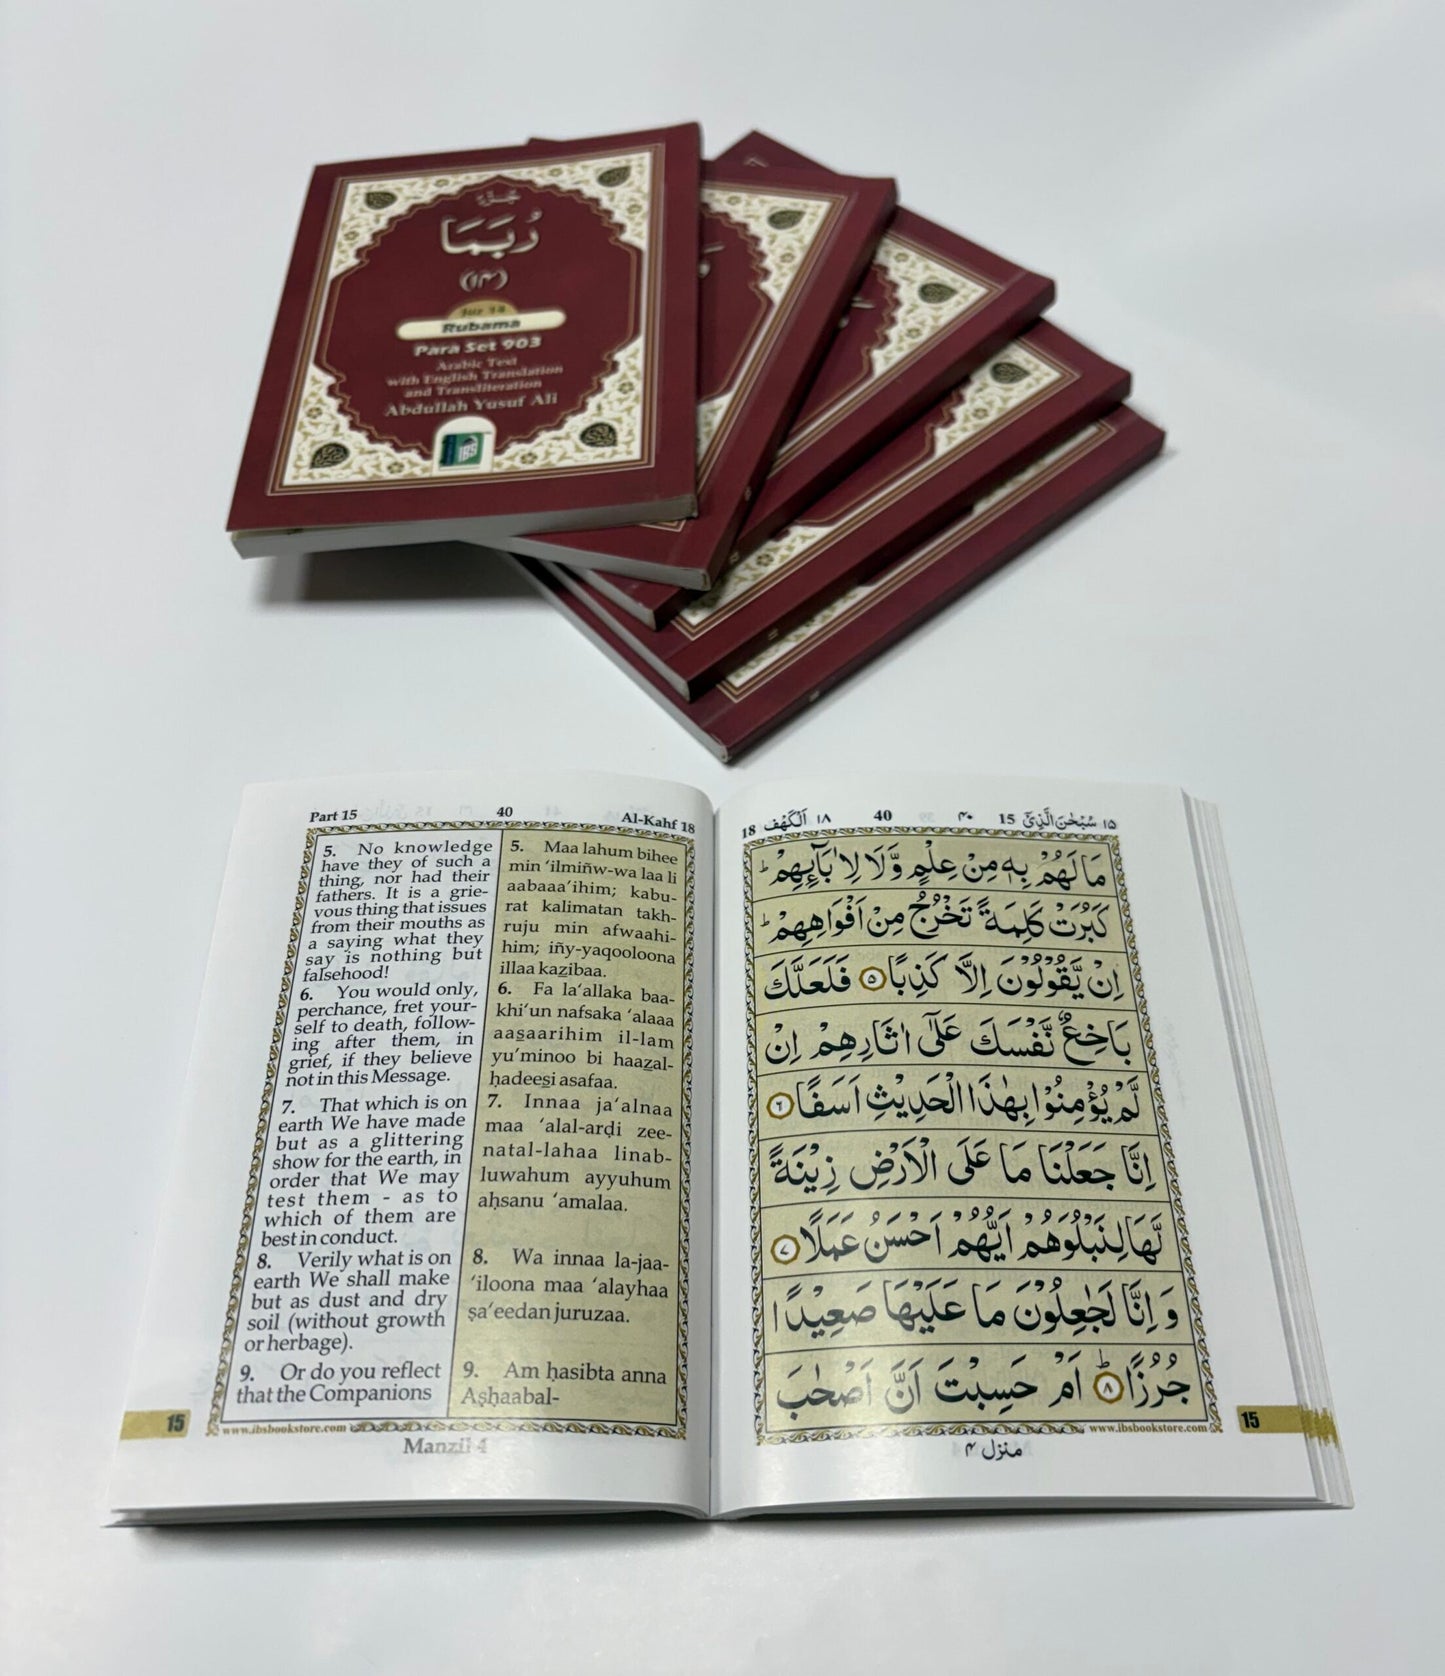 جزء
رُبَمَا
(۱۴)
Juz 14
Rubama
Para Set 903
Arabic Text
with English Translation
and Transliteration
Abdullah Yusuf Ali
IBS
Part 15
40
Al-Kahf 18
5. No knowledge
have they of such a
thing, nor had their
fathers. It is a grie-
vous thing that issues
from their mouths as
a saying what they
say is nothing but
falsehood!
6. You would only,
perchance, fret your-
self to death, follow-
ing after them, in
grief, if they believe
not in this Message.
7. That which is on
earth We have made
but as a glittering
show for the earth, in
order that We may
test them - as to
which of them are
best in conduct.
8. Verily what is on
earth We shall make
but as dust and dry
soil (without growth
or herbage).
9. Or do you reflect
that the Companions
5. Maa lahum bihee
min ‘ilmiñw-wa laa li
aabaaa’ihim; kabu-
rat kalimatan takh-
ruju min afwaahi-
him; iñy-yaqooloona
illaa kazibaa.
6. Fa la‘allaka baa-
khi‘un nafsaka ‘alaaa
aasaarihim il-lam
yu’minoo bi haazal-
ḥadeesi asafaa.
7. Innaa ja‘alnaa
maa ‘alal-arḍi zee-
natal-lahaa linab-
luwahum ayyuhum
aḥsanu ‘amalaa.
8. Wa innaa la-jaa-
‘iloona maa ‘alayhaa
ṣa‘eedan juruzaa.
9. Am ḥasibta anna
Aṣḥaabal-
15
www.ibsbookstore.com
Manzil 4
18 اَلْكَهْف ۱۸
40
۴۰
15 سُبْحٰنَ الَّذِيْ ۱۵
مَا لَهُمْ بِهٖ مِنْ عِلْمٍ وَّلَا لِاٰبَآىِٕهِمْ ؕ
كَبُرَتْ كَلِمَةً تَخْرُجُ مِنْ اَفْوَاهِهِمْ ؕ
اِنْ يَّقُوْلُوْنَ اِلَّا كَذِبًا ۵ فَلَعَلَّكَ
بَاخِعٌ نَّفْسَكَ عَلٰٓى اٰثَارِهِمْ اِنْ
لَّمْ يُؤْمِنُوْا بِهٰذَا الْحَدِيْثِ اَسَفًا ۶
اِنَّا جَعَلْنَا مَا عَلَى الْاَرْضِ زِيْنَةً
لَّهَا لِنَبْلُوَهُمْ اَيُّهُمْ اَحْسَنُ عَمَلًا ۷
وَ اِنَّا لَجٰعِلُوْنَ مَا عَلَيْهَا صَعِيْدًا
جُرُزًا ؕ ۸ اَمْ حَسِبْتَ اَنَّ اَصْحٰبَ
www.ibsbookstore.com
15
منزل ۴